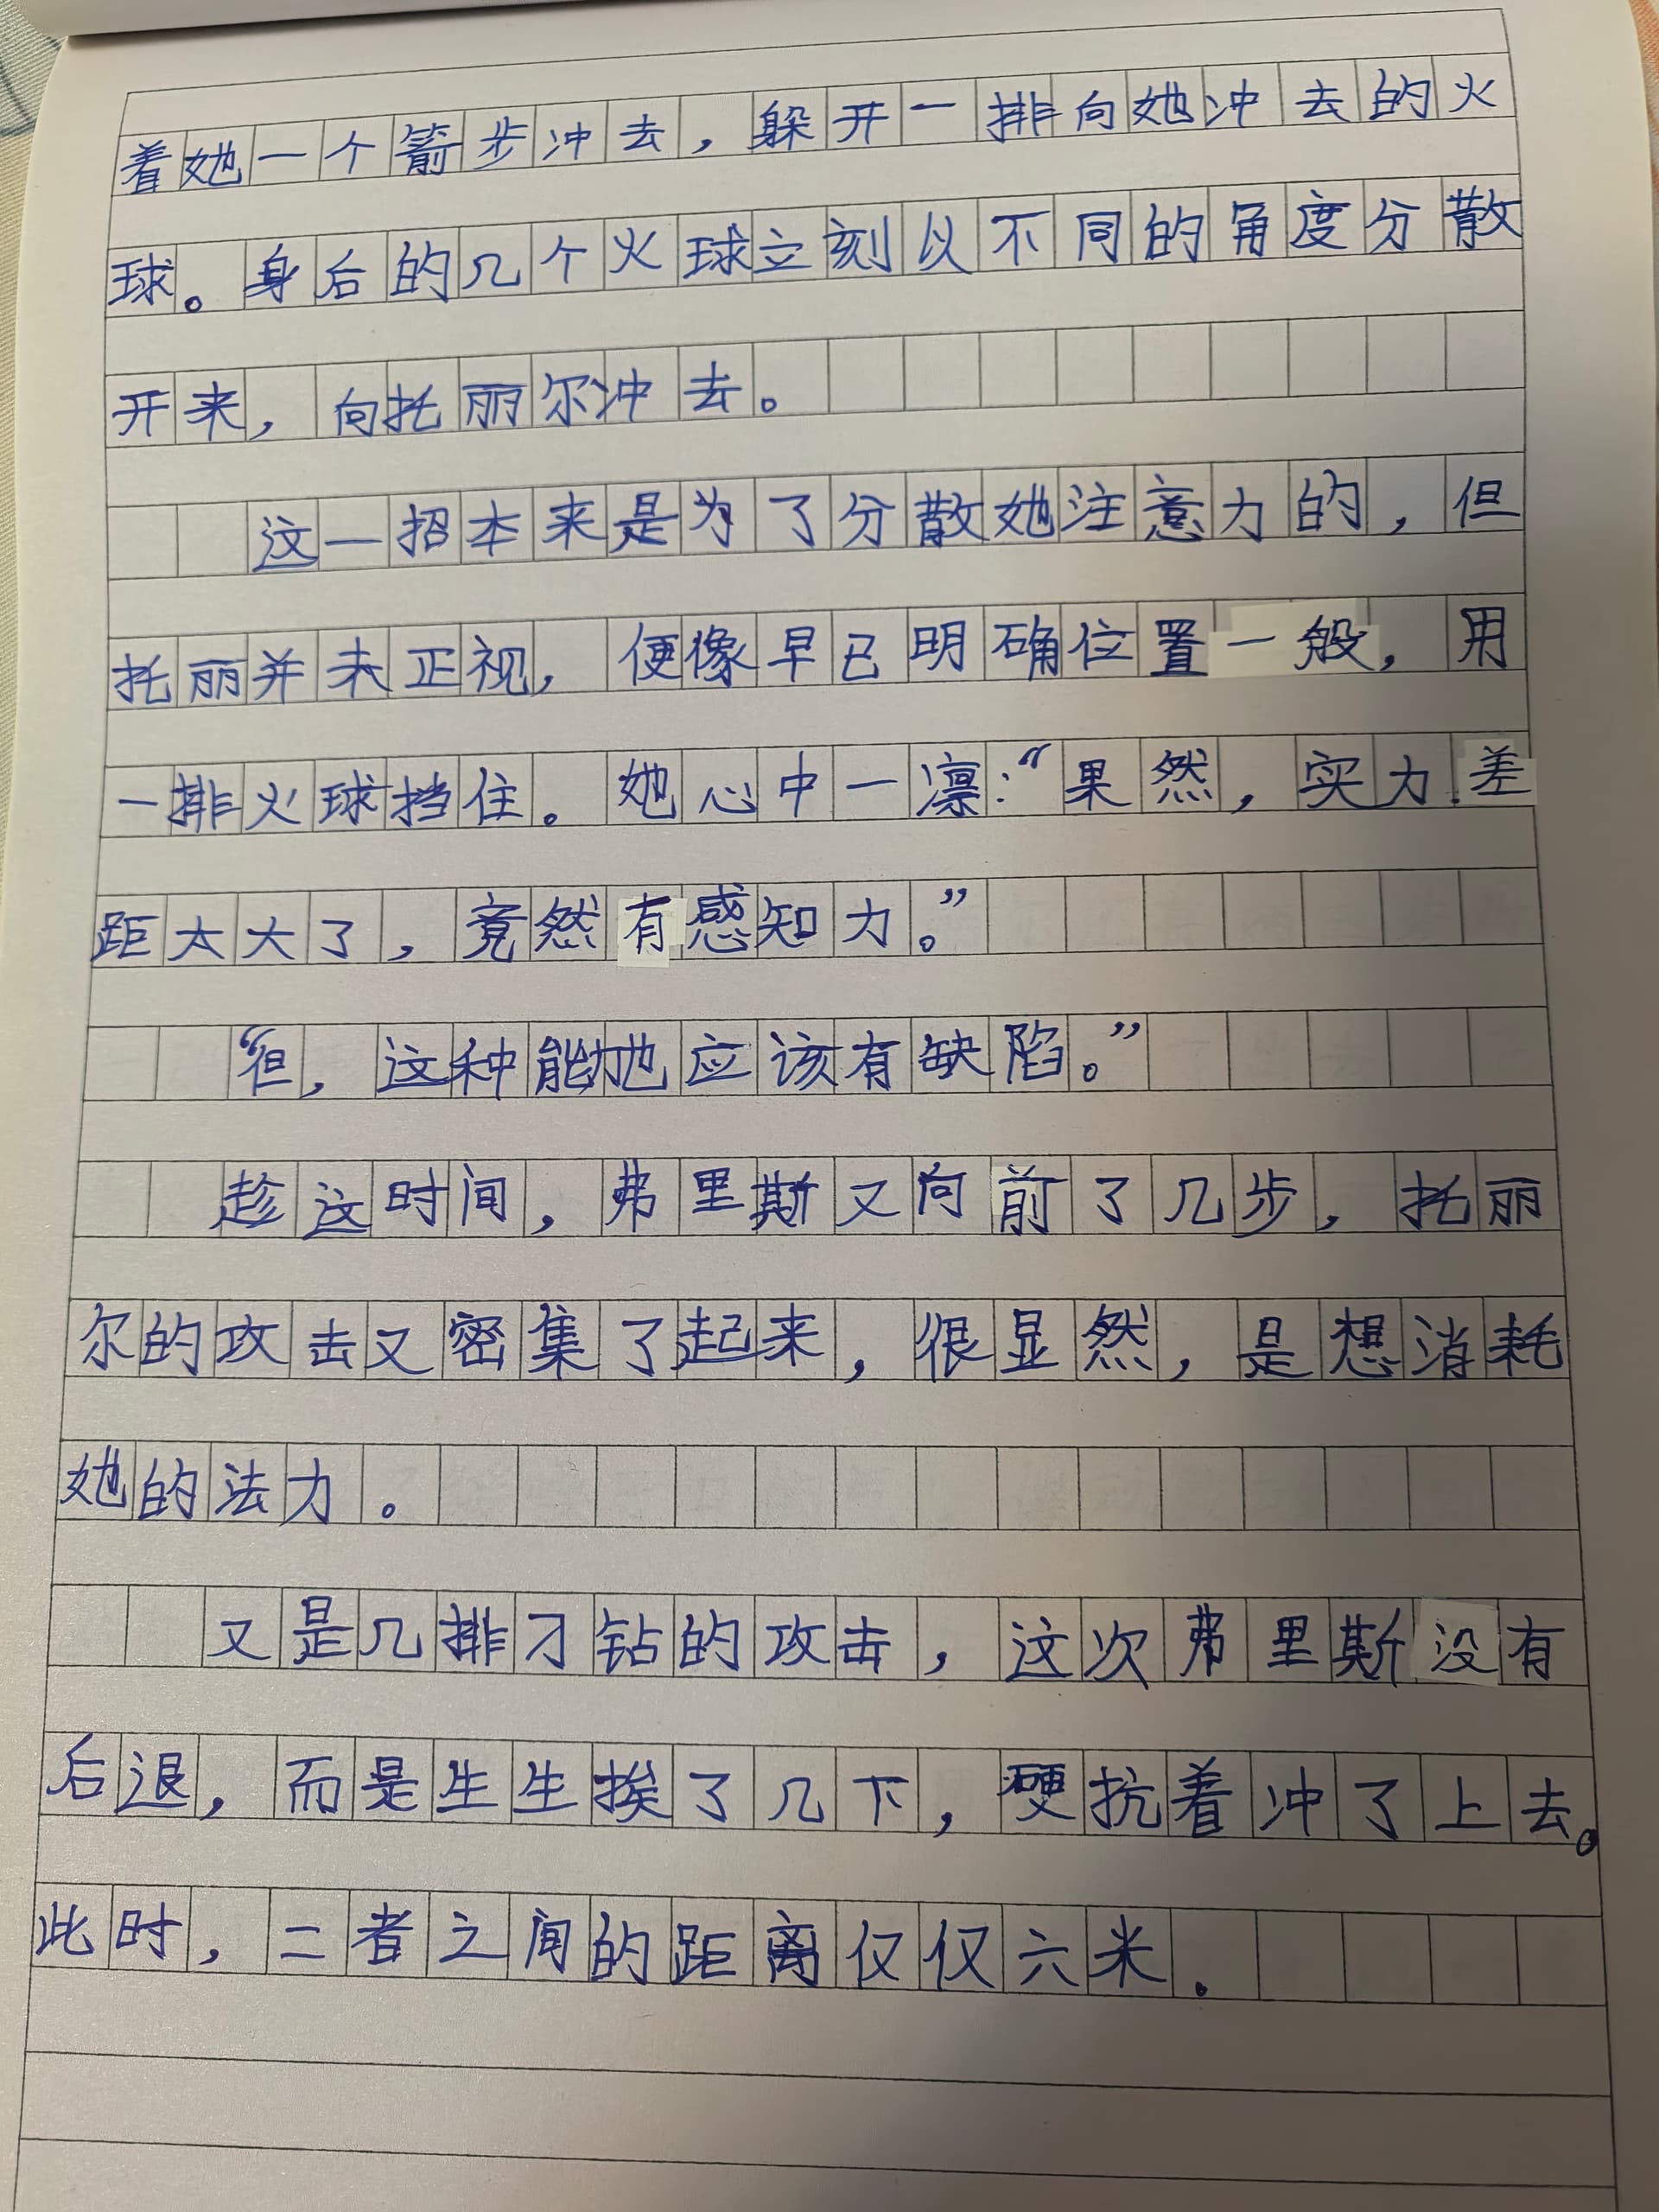 着她一个箭步冲去，躲开一排向她冲去的火
球。身后的几个火球立刻以不同的角度分散
开来，向托丽尔冲去。
这一招本来是为了分散她注意力的，但
托丽并未正视，便像早已明确位置一般，用
一排火球挡住。她心中一凛：“果然，实力差
距太大了，竟然有感知力。”
“但，这种能地应该有缺陷。”
趁这时间，弗里斯又向前了几步，托丽
尔的攻击又密集了起来，很显然，是想消耗
她的法力。
又是几排刁钻的攻击，这次弗里斯没有
后退，而是生生挨了几下，硬抗着冲了上去。
此时，二者之间的距离仅仅六米。